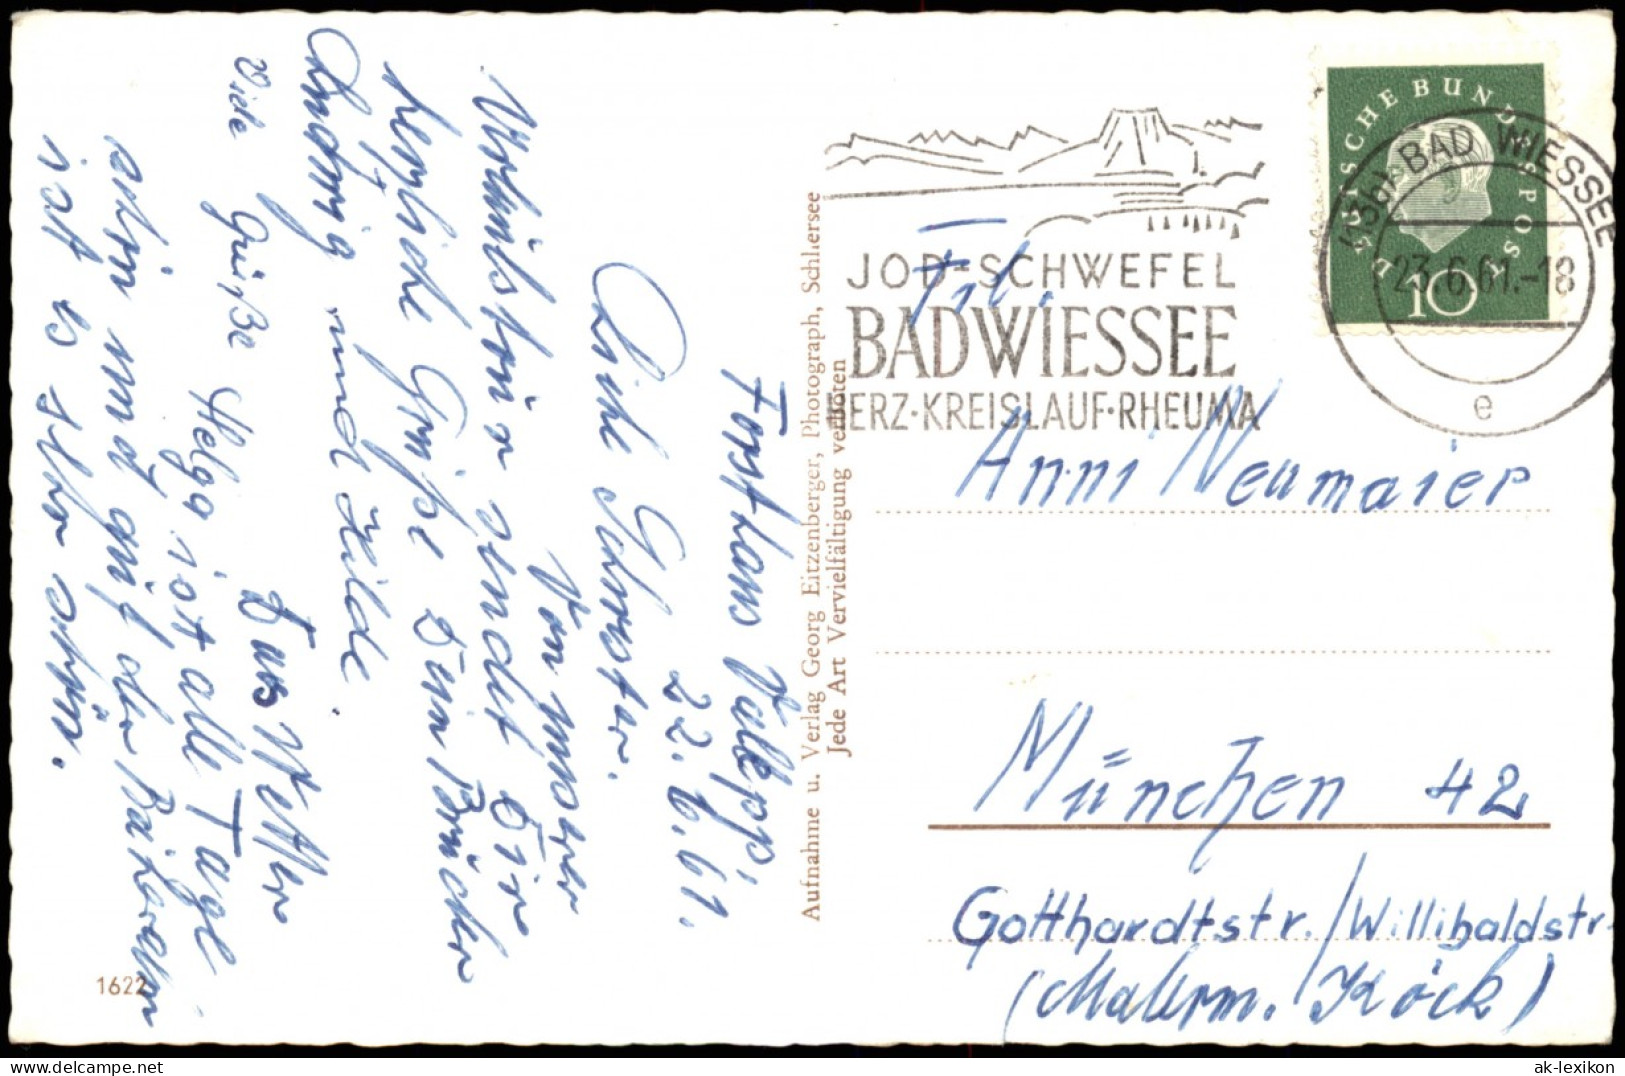 Forsthaus Valepp,
22.6.61.
Liebe Schwester.
Von unserer
sendet Dir
herzliche Grüße Dein Bruder
Ludwig und Hilde.
Viele Grüße Helga
Das Wetter
ist alle Tage
schön und auf der
ist es sehr schön.
1622
Aufnahme u. Verlag Georg Eitzenberger, Photograph, Schliersee
Jede Art Vervielfältigung verboten
JOD-SCHWEFEL
BAD WIESSEE
HERZ·KREISLAUF·RHEUMA
DEUTSCHE BUNDESPOST
10
(13b) BAD WIESSEE
23.6.61.-18
e
Frl.
Anni Neumaier
München 42
Gotthardtstr./Willibaldstr.
(Malerm. Köck)
ak-lexikon